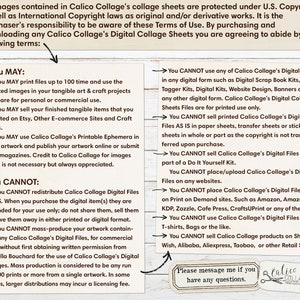 mages contained in Calico Collage's collage sheets are protected under U.S. Copy
ell as International Copyright laws as original and/or derivative works. It is the
haser's responsibility to be aware of these Terms of Use. By purchasing and
nloading any Calico Collage's Digital Collage Sheets you are agreeing to abide by
wing terms:
u MAY:
u MAY print files up to 100 times and use the
ted images in your tangible art & craft projects
are for personal or commercial use.
u MAY sell your finished tangible items that you
ted on Etsy, Other E-commerce Sites and Craft
u MAY use Calico Collage's Printable Ephemera in
artwork and publish your artwork online or submit
magazines. Credit to Calico Collage for images
is not necessary but always appreciated.
u CANNOT:
u CANNOT redistribute Calico Collage's Digital Files
S. When you purchase the digital item(s) they are
nded for your use only; do not share them, sell them
ve them away in either printed or digital format.
u CANNOT mass-produce your artwork contain-
ny Calico Collage's Digital Files, for commercial
without first obtaining written permission from
ella Bouchard for the use of Calico Collage's Digital
ges. Mass production is considered to be any run
0 prints or more from a single artwork. In some
s, larger distributions may incur a licensing fee.
You CANNOT use any of Calico Collage's Digital
in any digital form such as Digital Scrap Book Kits,
Tagger Kits, Digital Kits, Website Design, Banners or
any other digital form. Calico Collage's Digital Files
are for print use only.
You CANNOT sell printed Calico Collage's Digital
Files AS IS in paper sheets, transfer sheets or sticker
sheets in whole or part as the copyright is not trans-
ferred upon purchase.
You CANNOT sell Calico Collage's Digital Files as
part of a Do It Yourself Kit.
You CANNOT place/upload Calico Collage's Digital
Files on any websites.
You CANNOT place Calico Collage's Digital Files
on Print on Demand sites. Such as Amazon, Amazon
KDP, Zazzle, Cafe Press, CraftsUPrint or any of these
You CANNOT use Calico Collage's Digital Files on
T-shirts, Bags or the like.
You CANNOT sell Calico Collage products on Shopify,
Wish, Alibaba, Aliexpress, Taobao, or other Retail
Please message me if you
have any questions.
Calico